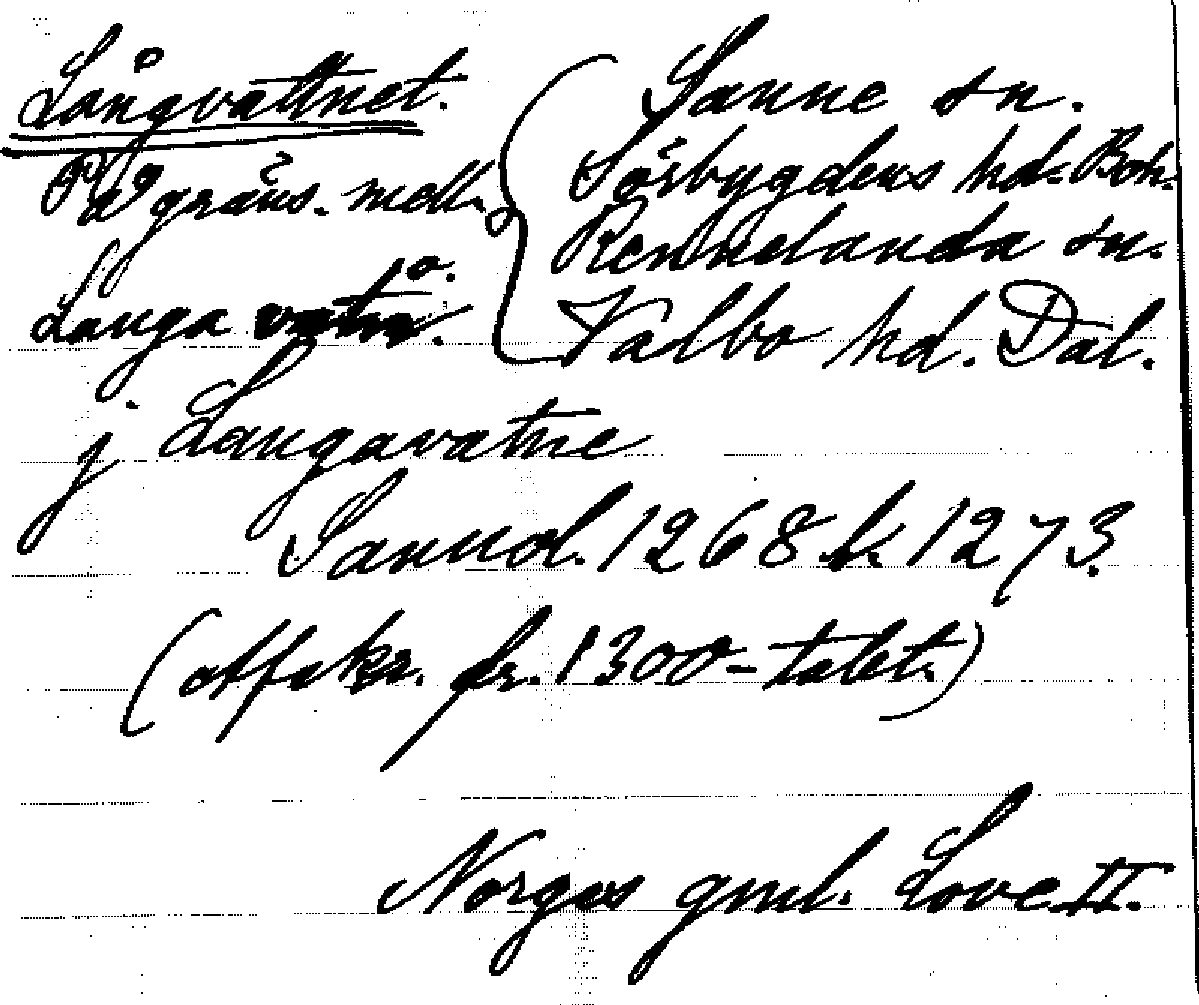 Långvattnet.
På gräns. mell.
Sanne sn.
Sörbygdens hd. Boh.
Rennelanda sn.
Valbo hd. Dal.
Langa
j Langavatne
Sannol. 1268 k. 1273.
(affskr. fr. 1300-talet.)
Norges gml. Love II.